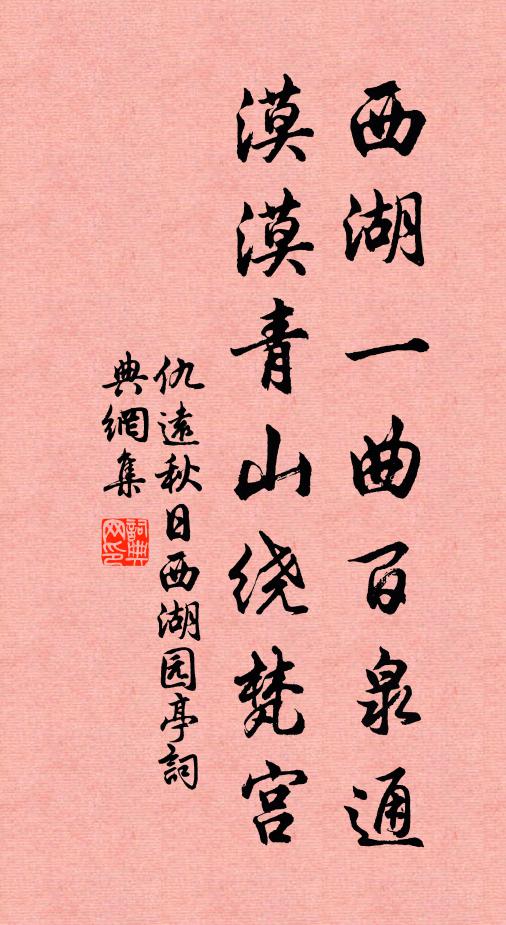 西湖一曲百泉通
漠漠青山绕梵宫
仇遠秋日西湖园亭詞
典網集
詞典網印